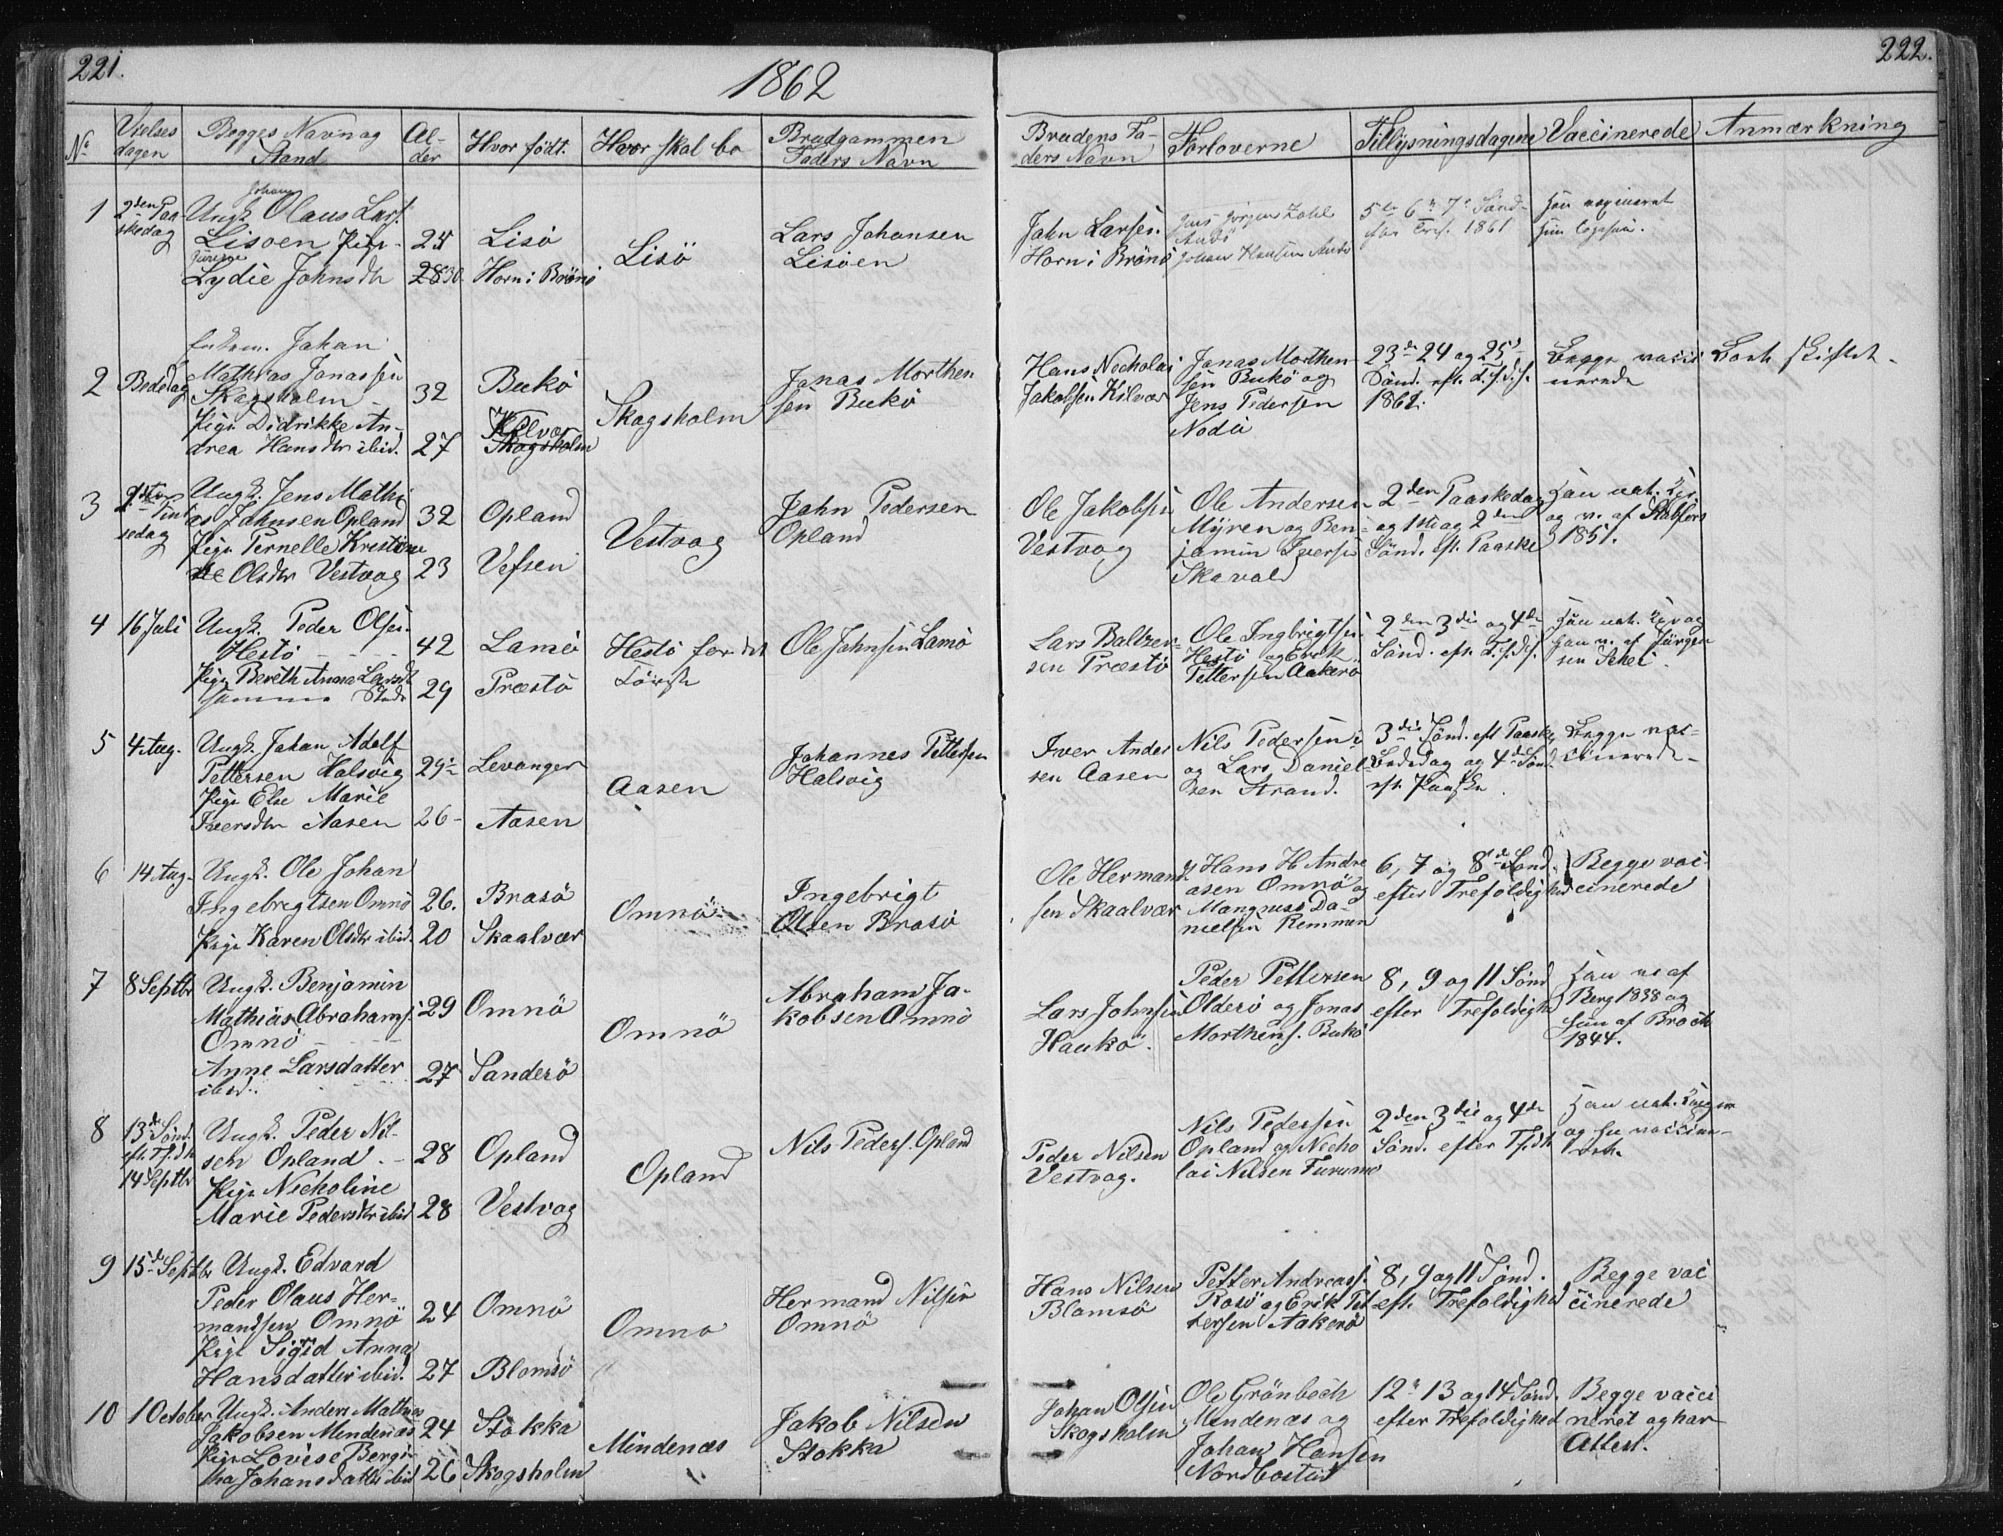 221.
1862
222.
No
Vielses dagen
Begges Navn og Stand
Alder
Hvor födt.
Hvor skal bo
Brudgammen Faders Navn
Brudens Faders Navn
Forloverne
Tillysningsdagene
Vaccinerede
Anmærkning
1
2den Paaskedag
Johan
Ungk. Olaus Lars.
Lisoen Pige
Lydie Johnsdtr
28 30
Lisö
Horn i Brönö
Lisö
Lars Johansen
Lisöen
John Larsen
Horn i Brönö
Johan Hansen
5te 6te 7de Sönd.
1861
2
Bededag
Johan
Mathias Jonassen
Skogsholm
Pige Didrikke An-
drea Hansdtr ibid.
32
27
Bukö
Kilvær
Skogsholm
Skogsholm
Jonas Morthen
sen Bukö
Hans Necholai
Jakobsen Kilvær
Jonas Morthen
sen Bukö og
Jens Pedersen
23de 24 og 25de
Sönd. eft.
1861.
Begge vacci
nerede
3
Ungk. Jens Mathi
as Johnsen Opland
Pige Pernelle Kristine
Olsdtr Vestvog
32
23
Opland
Vefsen
Vestvog
John Pedersen
Opland
Ole Jakobsen
Vestvog
Ole Andersen
Myren og Ben-
jamin Iversen
Skavald
2den Paaskedag
og 1ste og 2den
Sönd. eft. Paaske
1851.
4
16 Juli
Ungk. Peder Olsen
Hestö
Pige Bereth Anna Larsdt
samme Sted
42
29
Lamö
Præstö
Hestö for det
Förste
Ole Johnsen Lamö
Lars Baltzer-
sen Præstö
Ole Ingbrigtsen
Hestö og Erik
Pettersen Aakerö
2den 3die og 4de
Sönd. eft.
5
4 Aug.
Ungk. Johan Adolf
Pettersen Halsvig
Pige Else Marie
Iversdtr Aasen
29
26
Levanger
Aasen
Aasen
Johannes Pettersen
Halsvig
Iver Ander
sen Aasen
Nils Pedersen
og Lars Daniel-
sen Strand.
3die Sönd. eft Paaske
Bededag og 4de Sönd.
eft. Paaske
Begge vac-
cinerede
6
14 Aug.
Ungk. Ole Johan
Ingebrigtsen Omnö
Pige Karen Olsdtr ibid.
26.
20
Brasö
Skaalvær
Omnö
Ingebrigt
Olsen Brasö
Ole Hermand
sen Skaalvær
Hans H. Andre
asen Omnö og
Mangnus Da-
nielsen Remmen
6, 7 og 8de Sönd.
efter Trefoldighed
Begge vac
cinerede
7
8 Septbr
Ungk. Benjamin
Mathias Abrahams.
Omnö
Anne Larsdatter
ibid.
29
27
Omnö
Sanderö
Omnö
Abraham Ja-
kobsen Omnö
Lars Johnsen
Haukö.
Peder Pettersen
Olderö og Jonas
Morthens. Bukö
8, 9 og 11 Sönd
efter Trefoldighd
Han v. af
Berg 1838 og
hun af Broch
1844.
8
13de Sönd.
eft. Tfdh
14 Septbr
Ungk. Peder Nil-
sen Opland
Pige Necholine
Marie Pedersdtr ibid
28
28
Opland
Vestvog
Opland
Nils Peders. Opland
Peder Nilsen
Vestvog.
Nils Pedersen
Opland og Necho
lai Nilsen Furumo
2den 3die og 4de
Sönd. efter Tfdh
9
15de Septbr
Ungk. Edvard
Peder Olaus Her-
mandsen Omnö
Pige Sigrid Anna
Hansdatter ibid.
24
27
Omnö
Blomsö
Omno
Hermand Nilsen
Omnö
Hans Nilsen
Blomsö
Petter Andreass.
Rosö og Erik Pet
tersen Aakerö
8, 9 og 11 Sönd.
eft. Trefoldighed
Begge vac
cinerede
10
1 October
Ungk. Anders Mathias
Jakobsen Mindenæs
Pige Lovise Bergi-
tha Johansdatter ibid
24
26
Stokka
Skogsholm
Mindenæs
Jakob Nilsen
Stokka
Johan Olsen
Skogsholm
Ole Grönbech
Mindenæs og
Johan Hansen
Nordbostad
12te 13 og 14 Sönd.
efter Trefoldighed
Begge vacci
neret og har
Attest.